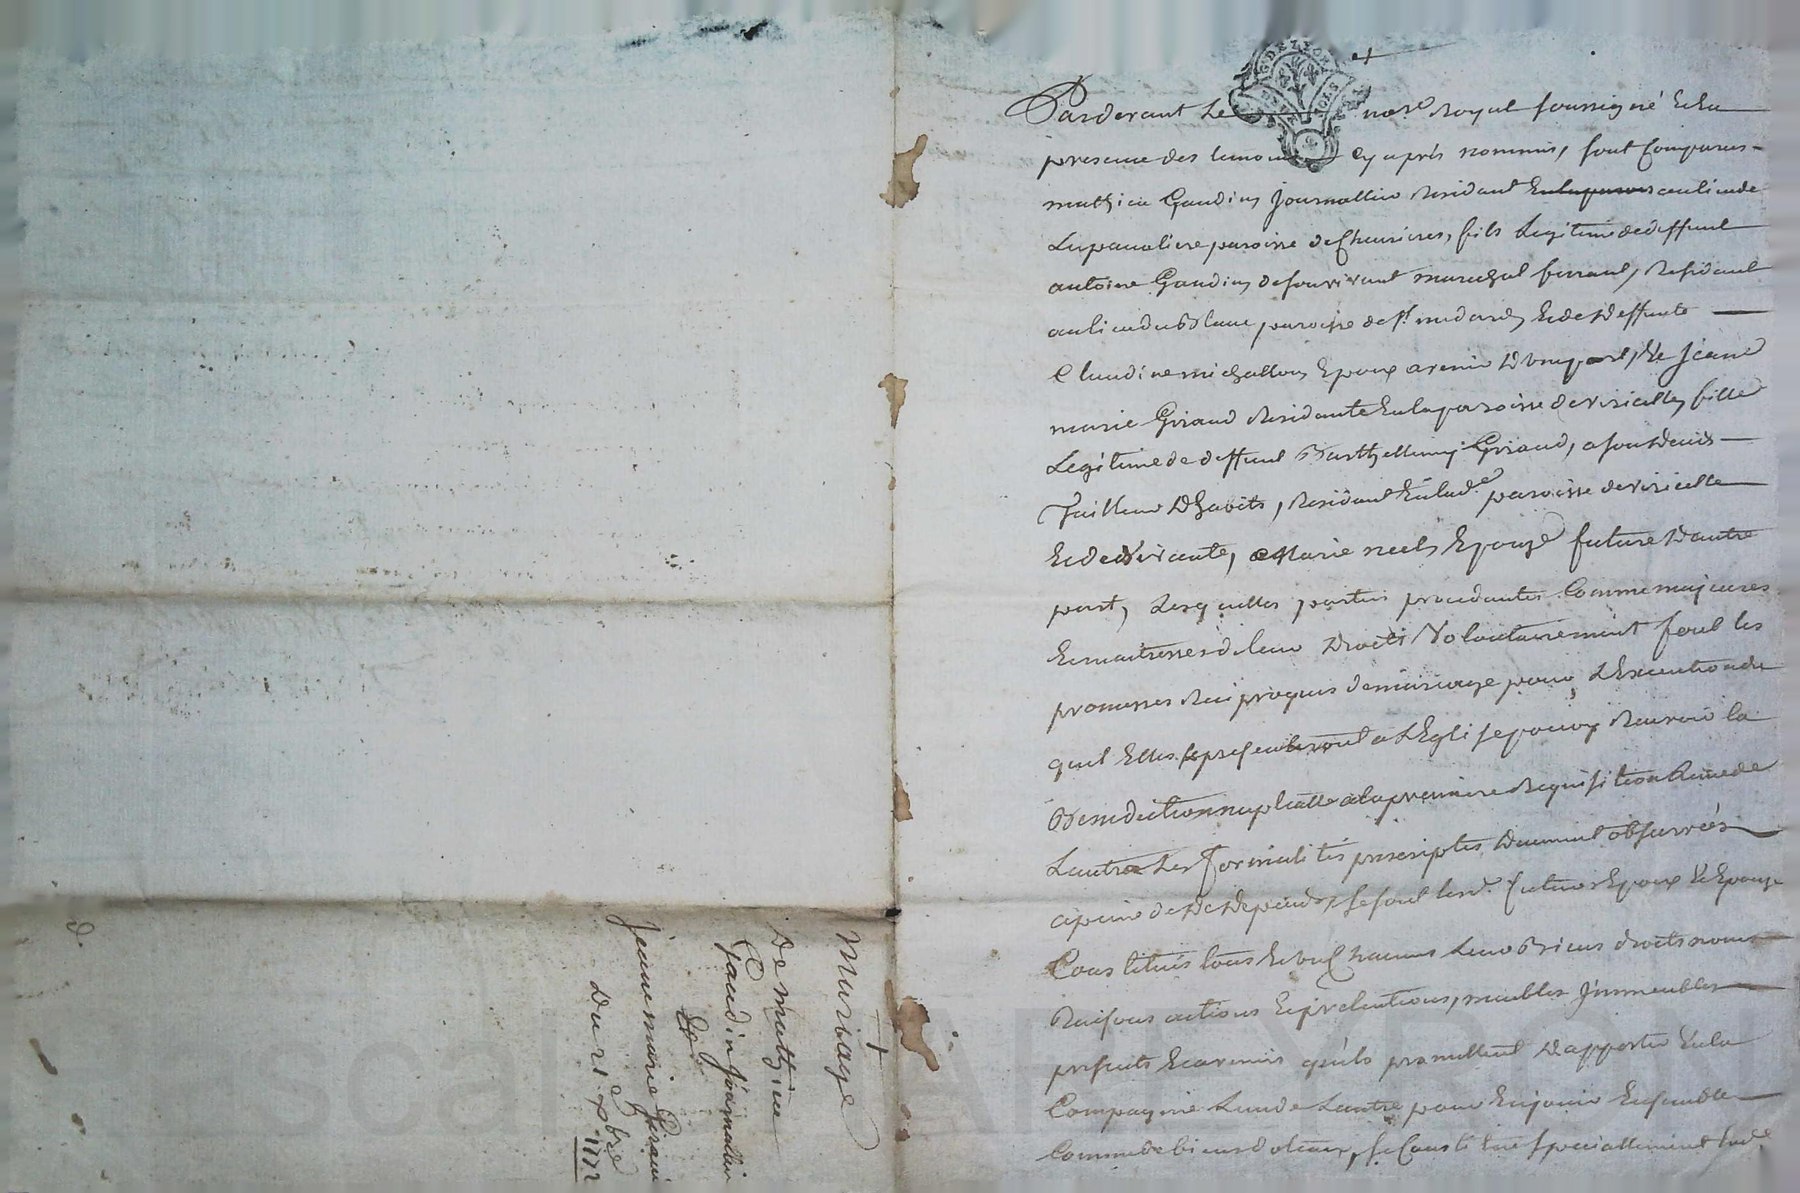 Pardevant Le no.re Royal soussigné & En
presence des temoins cy après nommés, sont comparus
mathieu Gaudin Journallier Residant au lieu de
Lapavaliere paroisse de Chevrieres, fils Legitime de deffunt
antoine Gaudin de son vivant marechal ferrant, Residant
au lieu du Blanc paroisse de St. medard, & de deffunte
Claudine michallon Epoux avenir D'une part, & Jeane
marie Giraud Residante En la paroisse de viricelle, fille
Legitime de deffunt Barthellemy Giraud, a son deces
Tailleur D'habits, Residant En lad.e paroisse de viricelle
& de vivante, Marie neel, Epouze future D'autre
part, Lesquelles parties procedantes Comme majeures
& maitresses de leur Droits Volontairement font les
promesses Reciproques de mariage pour L'Execution du
quel Elles se presenteront a L'Eglise pour y Recevoir la
Benediction nuptialle a la premiere Requisition L'une de
Lautre Les formalités prescriptes Duement observées
a peine de tous Depends, se sont lesd. futurs Epoux & Epouze
Constitués tous & un Chacuns Leur Biens droits noms
Raisons actions & pretentions, meubles Immeubles
presents & avenir qu'ils promettent D'apporter En la
Compagnie L'un de Lautre pour En jouir Ensemble
Comme de biens dotaux, se Constitue speciallement lad.e
Mariage
De mathieu
Gaudin Journallier
&
Jeane marie Giraud
Du 21 9bre 1772